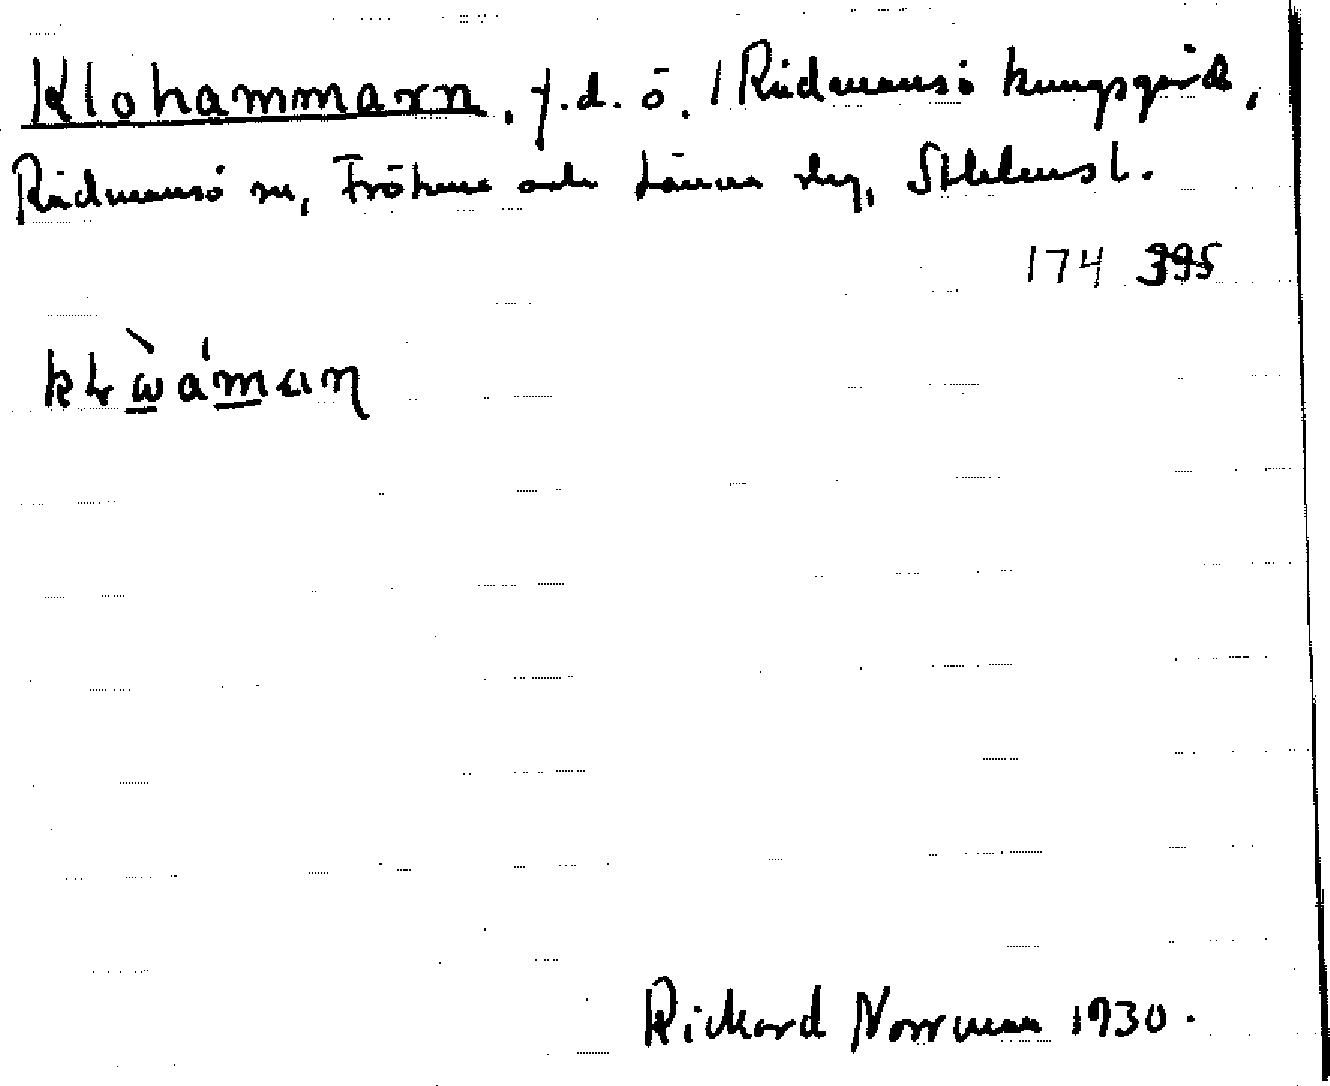 Klohammarn, f.d. ö. / Rådmansö kungsgård,
Rådmansö sn, Frötuna och Länna skg, Sthlms l.
174 395
Rickard Norrman 1930.